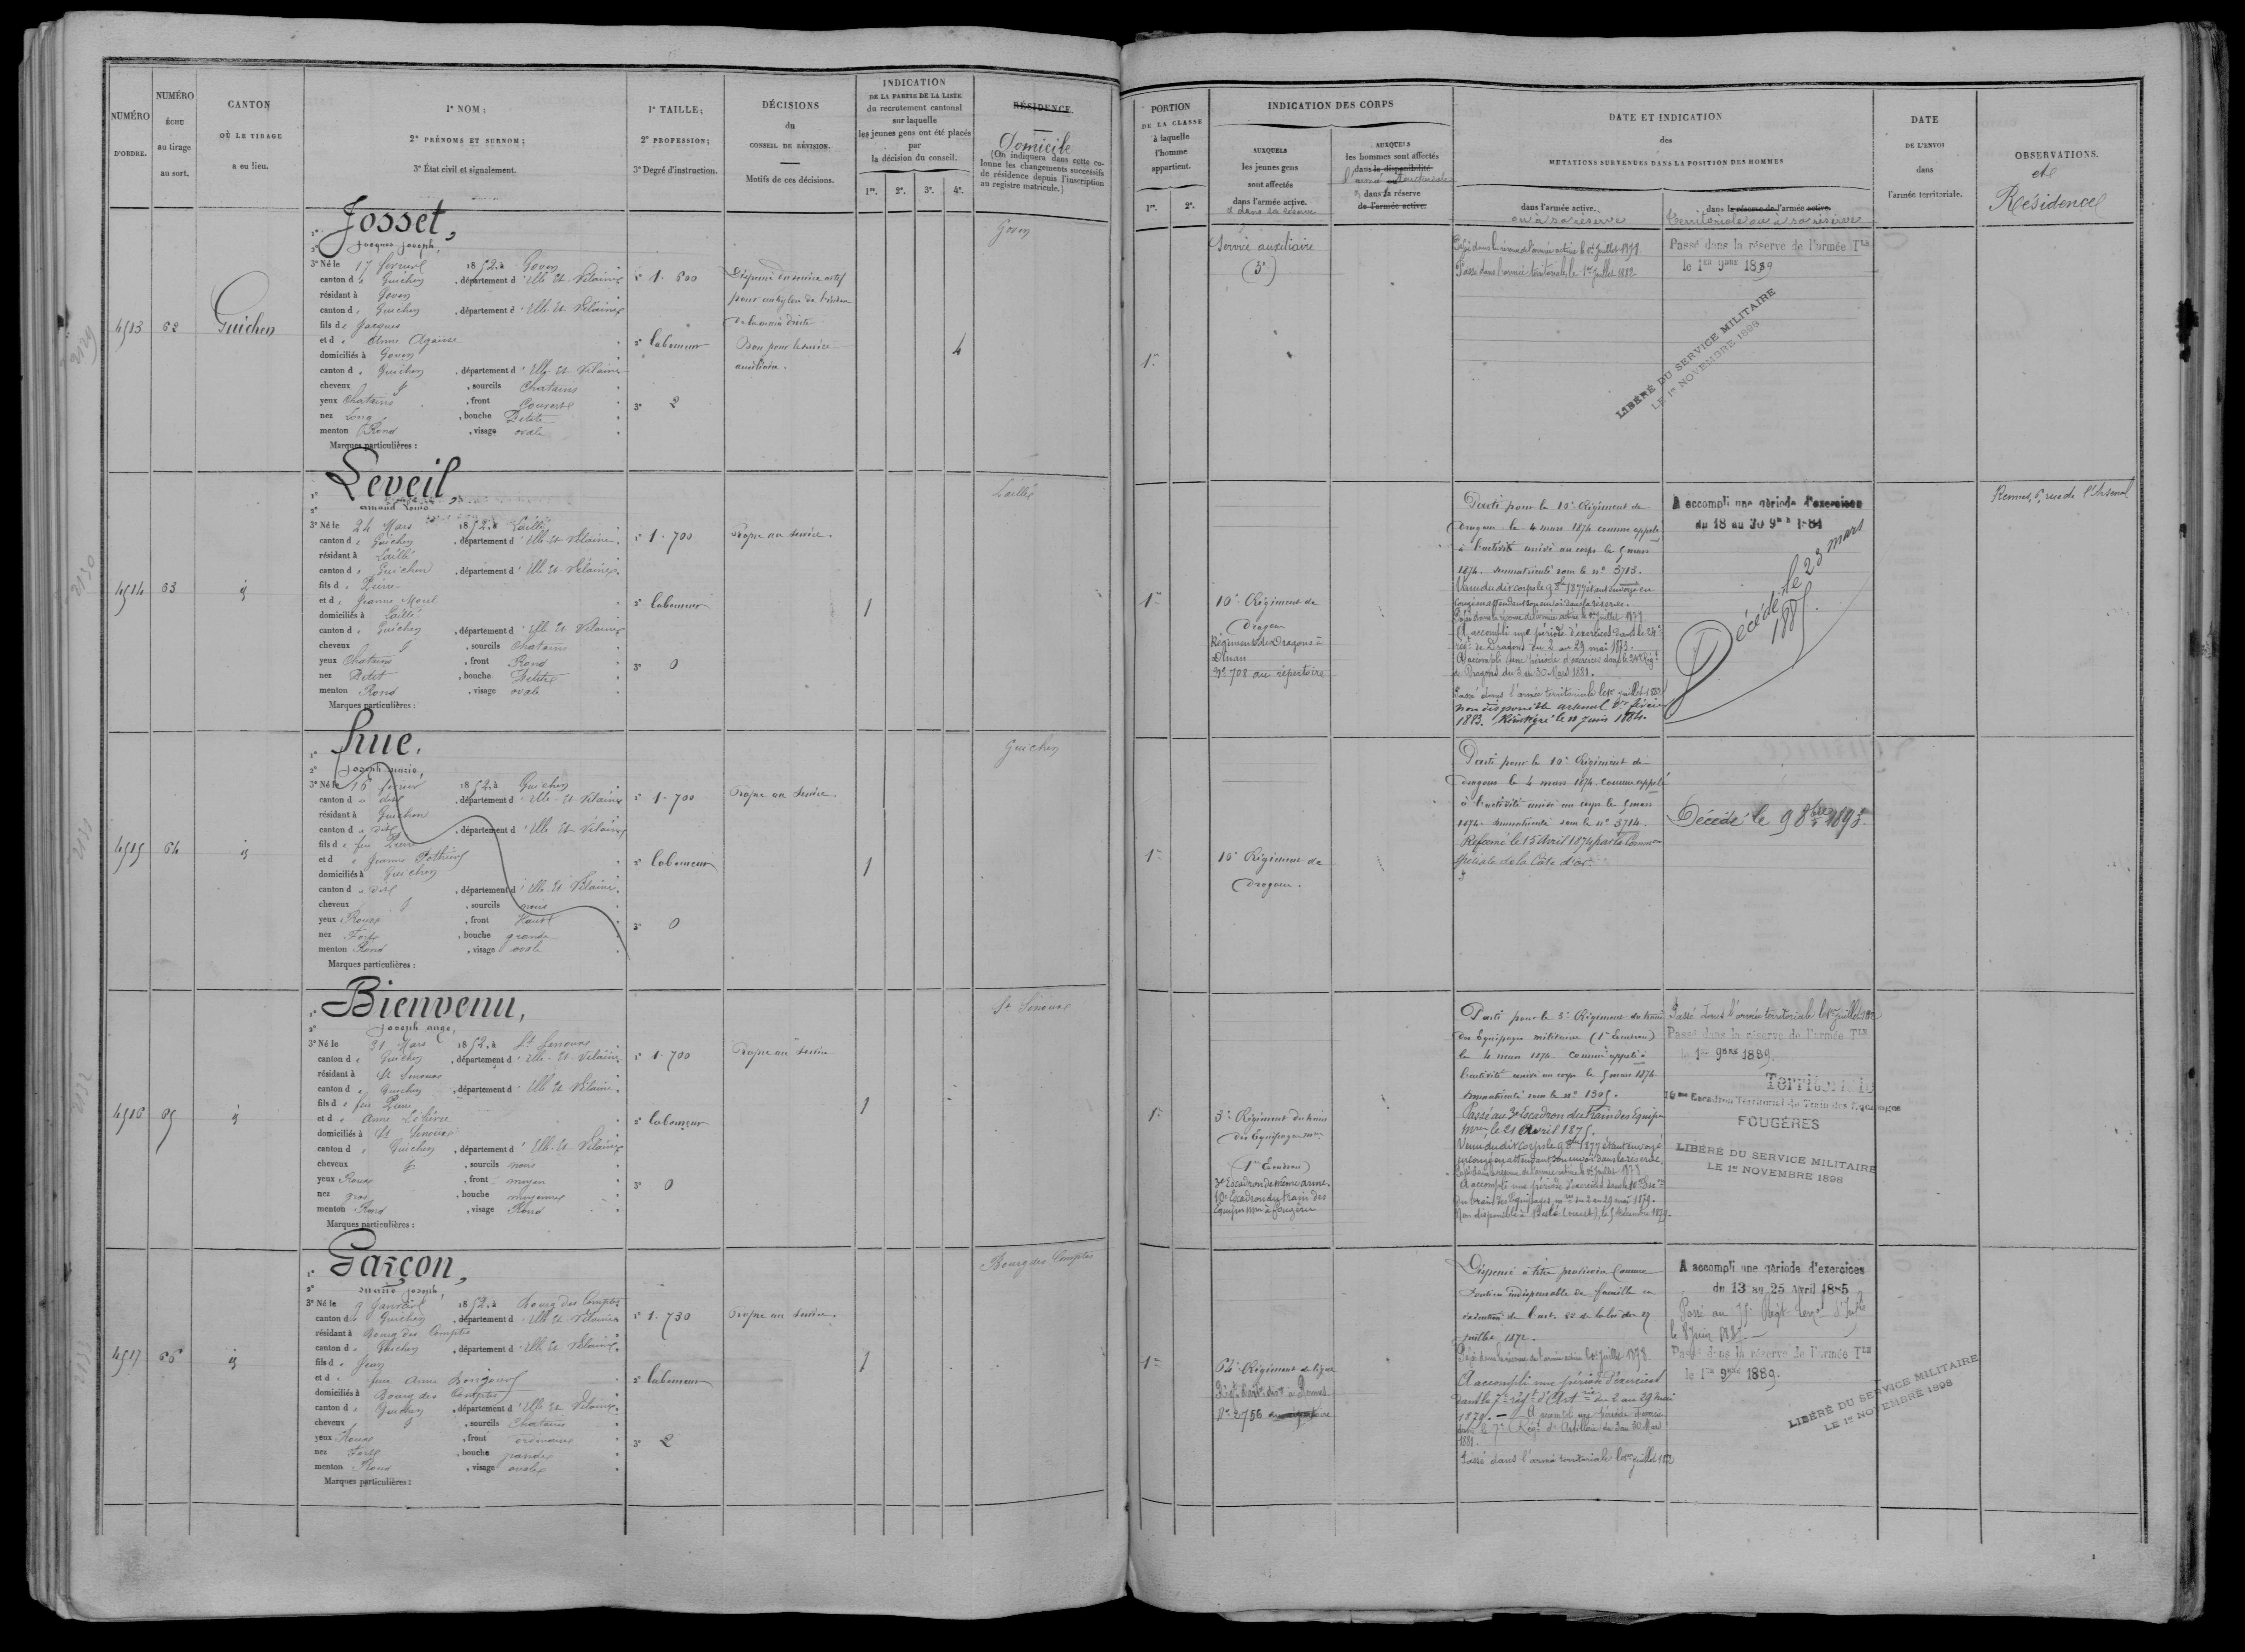 NUMÉRO
D'ORDRE.
NUMÉRO
ÉCHU
au tirage
au sort.
CANTON
OÙ LE TIRAGE
a eu lieu.
1° NOM ;
2° PRÉNOMS ET SURNOM ;
3° État civil et signalement.
1° TAILLE ;
2° PROFESSION ;
3° Degré d'instruction.
DÉCISIONS
du
CONSEIL DE RÉVISION.
Motifs de ces décisions.
INDICATION
DE LA PARTIE DE LA LISTE
du recrutement cantonal
sur laquelle
les jeunes gens ont été placés
par
la décision du conseil.
1re. 2e. 3e. 4e.
RÉSIDENCE.
Domicile
(On indiquera dans cette co-
lonne les changements successifs
de résidence depuis l'inscription
au registre matricule.)
PORTION
DE LA CLASSE
à laquelle
l'homme
appartient.
1re. 2e.
INDICATION DES CORPS
AUXQUELS
les jeunes gens
sont affectés
dans l'armée active.
& dans sa réserve
AUXQUELS
les hommes sont affectés
dans la disponibilité
l'armée territoriale
ou dans la réserve
de l'armée active.
DATE ET INDICATION
des
MUTATIONS SURVENUES DANS LA POSITION DES HOMMES
dans l'armée active.
ou à sa réserve
dans la réserve de l'armée active.
territoriale ou à sa réserve
DATE
DE L'ENVOI
dans
l'armée territoriale.
OBSERVATIONS.
et
Résidence
4513 62 Guichen
1° Josset,
2° Jacques Joseph,
3° Né le 17 février 1852, à Goven
canton de Guichen, département d'Ille Et Vilaine
résidant à Goven
canton de Guichen, département d'Ille Et Vilaine
fils de Jacques
et d Anne
domiciliés à Goven
canton de Guichen, département d'Ille Et Vilaine
cheveux, sourcils Chatains
yeux Chatains, front Couvert
nez Long, bouche Petite
menton Rond, visage ovale
Marques particulières :
1° 1.600
2° laboureur
3° 2
Dispensé du service actif
pour ankylose de l'index
de la main droite
Bon pour le service
auxiliaire.
4
Goven
1re
Service auxiliaire
(3e)
Passé dans la réserve de l'armée active le 1er Juillet 1878.
Passé dans l'armée territoriale le 1er Juillet 1882
Passé dans la réserve de l'armée Tle
le 1er 9bre 1889
LIBÉRÉ DU SERVICE MILITAIRE
LE 1er NOVEMBRE 1898
4514 63
1° Leveil
2° armand Louis
3° Né le 24 Mars 1852, à Laillé
canton de Guichen, département d'Ille Et Vilaine.
résidant à Laillé
canton de Guichen, département d'Ille Et Vilaine.
fils de Pierre
et de Jeanne Morel
domiciliés à Laillé
canton de Guichen, département d'Ille Et Vilaine
cheveux, sourcils Chatains
yeux Chatains, front Rond
nez Petit, bouche Petite
menton Rond, visage ovale
Marques particulières :
1° 1.700
2° laboureur
3° 0
Propre au service.
1
Laillé
1re
10e Régiment de
Dragons
Régiment de Dragons à
Dinan
N° 708 au répertoire
Parti pour le 10e Régiment de
Dragons le 4 mars 1874 comme appelé
à l'activité arrivé au corps le 5 mars
1874. immatriculé sous le n° 3713.
Passé dans la réserve de l'armée active le 1er Juillet 1878
A accompli une période d'exercices dans le 24e
régt de Dragons du 2 au 29 mai 1879.
A accompli une période d'exercices dans le 24e Régt
de Dragons du 3 au 30 Mars 1881.
Passé dans l'armée territoriale le 1er juillet 1882
non disponible arsenal 1er février
1883. Réintégré le 11 Juin 1884.
A accompli une période d'exercices
du 18 au 30 9bre 1884
Décédé le 23 mars
1885.
Rennes, 6, rue de l'Arsenal
4515 64
1° hue,
2° Joseph marie,
3° Né le 16 février 1852, à Guichen
canton du dit, département d'Ille Et Vilaine
résidant à Guichen
canton du dit, département d'Ille Et Vilaine
fils de feu Pierre
et de Jeanne
domiciliés à Guichen
canton du dit, département d'Ille Et Vilaine.
cheveux, sourcils noirs
yeux Roux, front Haut
nez Fort, bouche grande
menton Rond, visage ovale
Marques particulières :
1° 1.700
2° laboureur
3° 0
Propre au service.
1
Guichen
1re
10e Régiment de
Dragons.
Parti pour le 10e Régiment de
dragons le 4 mars 1874 comme appelé
à l'activité arrivé au corps le 5 mars
1874. immatriculé sous le n° 3714.
Réformé le 15 Avril 1874 par la Common
spéciale de la Côte d'or.
Décédé le 9 8bre 1893.
4516 65
1° Bienvenu,
2° Joseph ange,
3° Né le 31 Mars 1852, à St Senoux
canton de Guichen, département d'Ille Et Vilaine.
résidant à St Senoux
canton de Guichen, département d'Ille Et Vilaine.
fils de feu Pierre
et de Anne Lelièvre
domiciliés à St Senoux
canton de Guichen, département d'Ille Et Vilaine
cheveux, sourcils noirs
yeux Roux, front moyen
nez gros, bouche moyenne
menton Rond, visage Rond
Marques particulières :
1° 1.700
2° laboureur
3° 0
Propre au service
1
St Senoux
1re
3e Régiment du train
des Equipages mres
(1er Escadron)
3e Escadron de même arme.
10e Escadron du train des
Equipes mres à fougères
Parti pour le 3e Régiment du train
des équipages militaires (1er Escadron)
le 4 mars 1874 comme appelé à
l'activité arrivé au corps le 5 mars 1874
immatriculé sous le n° 1305.
Passé au 3e Escadron du train des Equipages
mres le 21 Avril 1875.
Passé dans la réserve de l'armée active le 1er Juillet 1878
A accompli une période d'exercices dans le 10e Escon
du train des Equipages mres du 2 au 29 mai 1879.
Passé dans l'armée territoriale le 1er juillet 1882
Passé dans la réserve de l'armée Tle
le 1er 9bre 1889.
Territoriale
Escadron Territorial du Train des Equipages
FOUGÈRES
LIBÉRÉ DU SERVICE MILITAIRE
LE 1er NOVEMBRE 1898
4517 66
1° Garçon,
2° marie joseph,
3° Né le 9 Janvier 1852, à Bourg des Comptes
canton de Guichen, département d'Ille Et Vilaine
résidant à Bourg des Comptes
canton de Guichen, département d'Ille Et Vilaine.
fils de Jean
et de feue Anne
domiciliés à Bourg des Comptes
canton de Guichen, département d'Ille Et Vilaine
cheveux, sourcils Chatains
yeux Roux, front ordinaire
nez Fort, bouche grande
menton Rond, visage ovale
Marques particulières :
1° 1.730
2° laboureur
3° 2
Propre au service
1
Bourg des Comptes
1re
64e Régiment de ligne
N° 2756 au répertoire
Dispensé à titre provisoire Comme
soutien indispensable de famille en
exécution de l'art. 22 de la loi du 27
juillet 1872.
Passé dans la réserve de l'armée active le 1er Juillet 1878.
A accompli une période d'exercices
dans le 7e régt d'Artrie du 2 au 29 mai
1879. — A accompli une période d'exercices
dans le 7e Régt d'Artillerie du 3 au 30 Mars
1881.
Passé dans l'armée territoriale le 1er juillet 1882
A accompli une période d'exercices
du 13 au 25 Avril 1885
Passé dans la réserve de l'armée Tle
le 1er 9bre 1889.
LIBÉRÉ DU SERVICE MILITAIRE
LE 1er NOVEMBRE 1898
2129
2130
2131
2132
2133